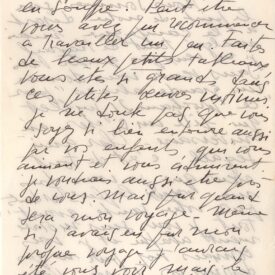 en souffre. Peut être
vous avez pu recommencer
à travailler un peu. Faites
de beaux petits tableaux
vous êtes si grand dans
ces petites œuvres intimes
je ne doute pas que vous
soyez si bien entouré aussi
par vos enfants qui vous
aiment et vous admirent.
je voudrais aussi être près
de vous. Mais pour quand
sera mon voyage - même
si j'avais fait mon
voyage j'aurais
été vous voir mais